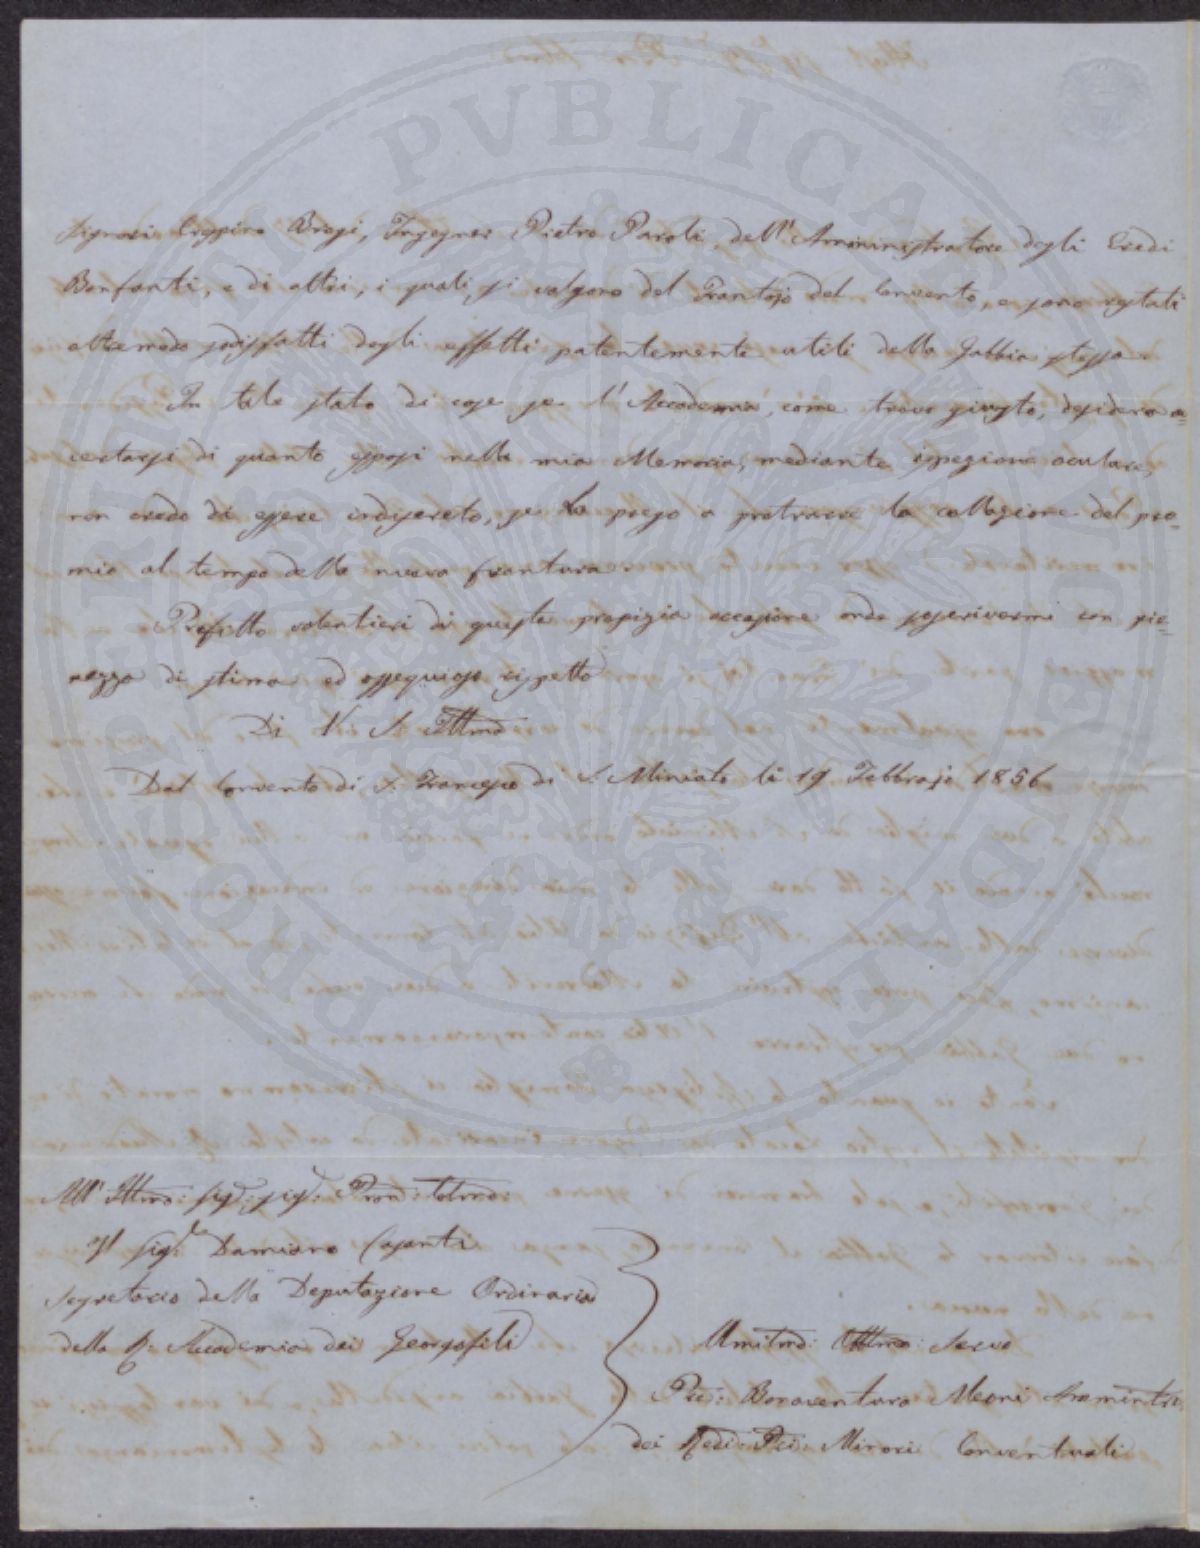 Signori Crispino Brogi, Ingegner Pietro Paroli, dell'Amministratore degli Eredi
Bonfanti, e di altri, i quali si valgono del Frantojo del Convento, e sono restati
oltremodo sodisfatti degli effetti patentemente utili della Gabbia stessa.
In tale stato di cose se l'Accademia, come trovo giusto, desidera ac=
certarsi di quanto esposi nella mia Memoria, mediante ispezione oculare,
non credo di essere indiscreto, se La prego a protrarre la collazione del pre=
mio al tempo della nuova frantura.
Profitto volentieri di questa propizia occasione onde soscrivermi con pie=
nezza di stima ed ossequioso rispetto
Di V. S. Illma
Dal Convento di S. Francesco di S. Miniato li 19 Febbrajo 1856
All' Illmo: Sig: Sig: Pron: Colmo:
Il Sig: Damiano Casanti
Segretario della Deputazione Ordinaria
della R. Accademia dei Georgofili
Umilmo: Obbmo: Servo
Pre: Bonaventura Meoni Ammintre
dei Redi: Pri: Minori Conventuali
PROSPERITATI PVBLICAE AVGENDAE